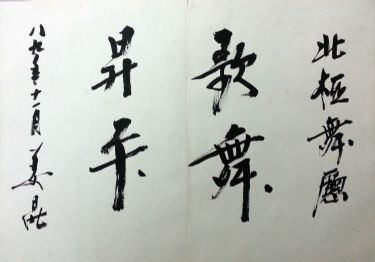 北極舞廳
歌舞
昇平
八九年十一月 姜昆